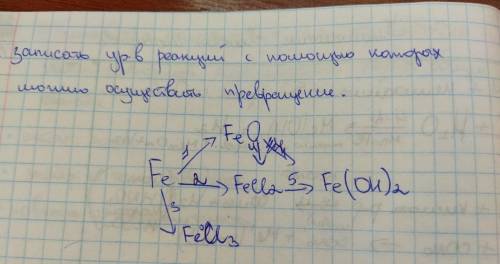 записать ур-в реакций с помощью которых
можно осуществить превращение.
1 FeO 4
Fe 2 FeCl2 5 Fe(OH)2
3
FeCl3